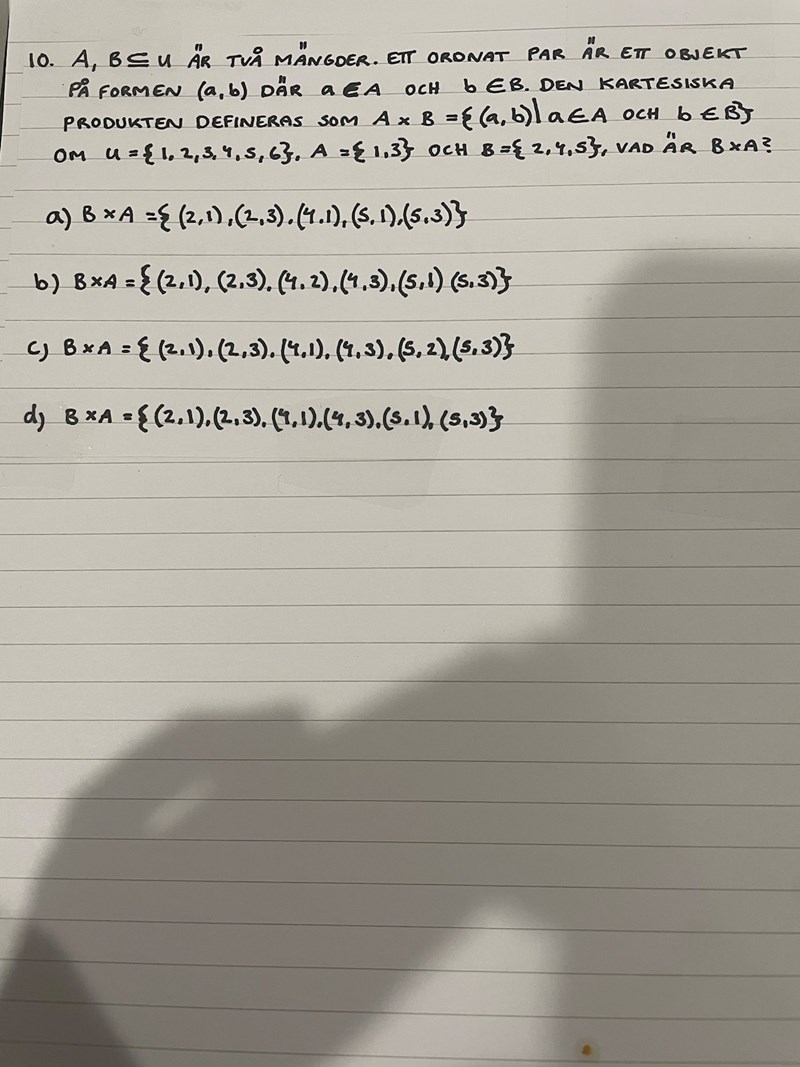 10. A, B ⊆ U ÄR TVÅ MÄNGDER. ETT ORDNAT PAR ÄR ETT OBJEKT
PÅ FORMEN (a, b) DÄR a ∈ A OCH b ∈ B. DEN KARTESISKA
PRODUKTEN DEFINERAS SOM A × B = {(a, b) | a ∈ A OCH b ∈ B}
OM U = {1, 2, 3, 4, 5, 6}, A = {1, 3} OCH B = {2, 4, 5}, VAD ÄR B × A?
a) B × A = {(2,1), (2,3). (4.1), (5,1), (5,3)}
b) B × A = {(2,1), (2,3). (4,2), (4,3), (5,1) (5,3)}
c) B × A = {(2,1), (2,3). (4,1), (4,3), (5,2), (5,3)}
d) B × A = {(2,1), (2,3), (4,1), (4,3), (5,1), (5,3)}